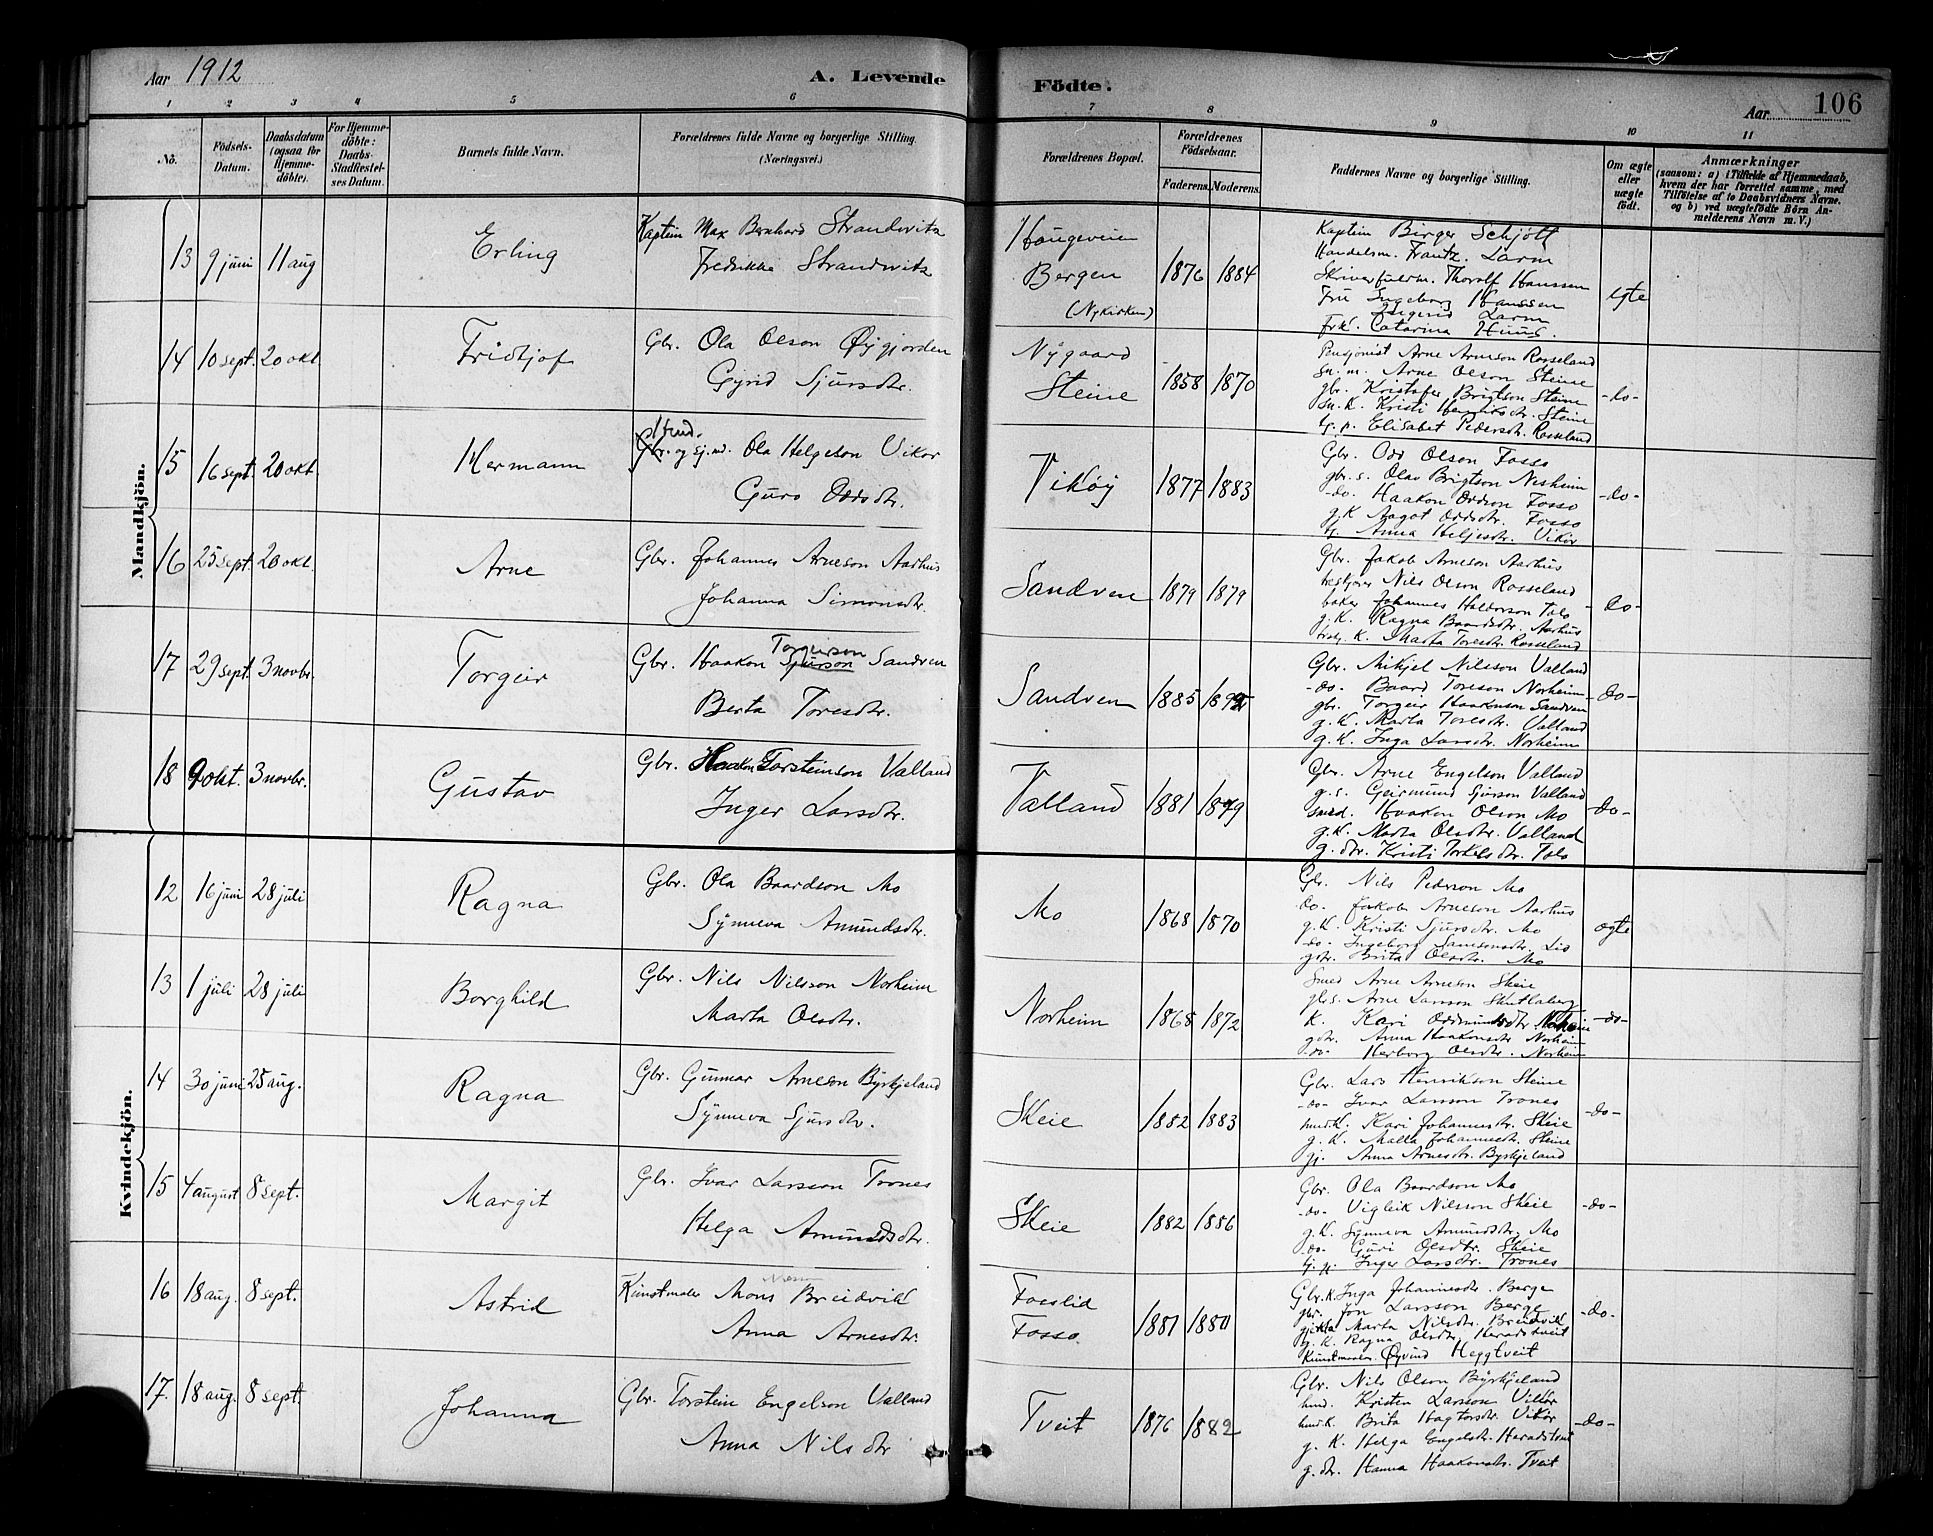 Aar 1912
A. Levende Födte.
Aar 106
1 2 3 4 5 6 7 8 9 10 11
No.
Födsels-Datum.
Daabsdatum (ogsaa for Hjemme-döbte).
For Hjemme-döbte: Daabs-Stadfæstel-ses Datum.
Barnets fulde Navn.
Forældrenes fulde Navne og borgerlige Stilling. (Næringsvei.)
Forældrenes Bopæl.
Forældrenes Födselsaar.
Faderens. Moderens.
Faddernes Navne og borgerlige Stilling.
Om ægte eller uægte födt.
Anmærkninger
(saasom: a) i Tilfælde af Hjemmedaab, hvem der har forrettet samme, med Tilföielse af to Daabsvidners Navne. og b) ved uægtefödte Börn An-melderens Navn m. V.)
Mandkjön.
13 9 juni 11 aug
Erling
Kaptein Max Bernhard Strandvitz
Fredrikke Strandvitz
Haugeveien
Bergen
(Nykirken)
1876 1884
Kaptein Birger Schjött
Handelsm. Frantz Larm
Thorolf Hanssen
Fru Ingeborg Hanssen
Ingerid Larm
Frk. Catarina Huus.
egte
14 10 sept. 20 okt
Fridtjof
Gbr. Ola Olson Øygjorden
Gyrid Sjursdtr.
Nygaard
Steine
1858 1870
Pensjonist Arne Arneson Rosseland
Arne Olson Steine
gbr. Kristofer Brigtson Steine
Kristi Henriksdtr. Steine
Elisabet Pedersdtr. Rosseland
-do-
15 16 sept. 20 okt.
Hermann
Hmd.
Gbr. og sj.md. Ola Helgeson Vikør
Guro Oddsdtr.
Vikøy
1877 1883
Gbr. Odd Olson Fosso
gbr. s. Olav Brigtson Nesheim
-do- Haakon Oddson Fosso
g.K Aagot Oddsdtr. Fosso
Anna Heljesdtr. Vikør
-do-
16 25 sept. 20 okt.
Arne
Gbr. Johannes Arneson Aarhus
Johanna Simonsdtr.
Sandven
1879 1879
Gbr. Jakob Arneson Aarhus
bestyrer Nils Olson Rosseland
baker Johannes Haldorson Tolo
g.K. Ragna Baardsdtr. Aarhus
K. Marta Toresdtr. Rosseland
-do-
17 29 sept. 3 novbr.
Torgeir
Torgeirson
Gbr. Haakon Sjurson Sandven
Berta Toresdtr.
Sandven
1885
Gbr. Mikjel Nilsson Valland
-do- Baard Toreson Norheim
gbr. Torgeir Haakonson Sandven
g.K. Marta Toresdtr. Valland
g.K. Inga Larsdtr. Norheim
-do-
18 9 okt. 3 novbr.
Gustav
Gbr. Haakon Torsteinson Valland
Inger Larsdtr.
Valland
1881 1879
Gbr. Arne Engelson Valland
g.s. Geirmund Sjurson Valland
smed. Haakon Olson Mo
g.K. Marta Olsdtr. Valland
g. dtr. Kristi Torkelsdtr. Tolo
-do-
Kvindekjön.
12 16 juni 28 juli
Ragna
Gbr. Ola Baardson Mo
Synneva Amundsdtr.
Mo
1868 1870
Gbr. Nils Pederson Mo
do. Jakob Arneson Aarhus
g.K. Kristi Sjursdtr. Mo
-do- Ingeborg Samsonsdtr. Lio
gdtr. Brita Olsdtr. Mo
egte
13 1 juli 28 juli
Borghild
Gbr. Nils Nilsson Norheim
Marta Olsdtr.
Norheim
1868 1872
Smed Arne Arneson Skeie
gbr.s. Arne Larsson Skutlaberg
K. Kari Oddmundsdtr Norheim
gdtr. Anna Haakonsdtr Norheim
-do- Herborg Olsdtr. Norheim
-do-
14 30 juni 25 aug.
Ragna
Gbr. Gunnar Arneson Byrkjeland
Synneva Sjursdtr.
Skeie
1882 1883
Gbr. Lars Henrikson Steine
-do- Ivar Larsson Trones
hmd.K. Kari Johannesdtr. Skeie
g.K. Malla Johannesdtr. Steine
gj. Anna Arnesdtr. Byrkjeland
-do-
15 4 august 8 sept.
Margit
Gbr. Ivar Larsson Trones
Helga Amundsdtr.
Skeie
1882 1886
Gbr. Ola Baardson Mo
-do- Vigleik Nilsson Skeie
g.K. Synneva Amundsdtr. Mo
-do- Guri Olsdtr. Skeie
Inger Larsdtr. Trones
-do-
16 18 aug. 8 sept.
Astrid
Kunstmaler Mons Breidvik
Anna Arnesdtr.
Foeslid
Fosso
1881 1880
Gbr.K. Inga Johannesdtr. Berge
gbr. Jon Larsson Berge
Marta Nilsdtr. Breidvik
g.K. Ragna Olsdtr. Heradstveit
Kunstmaler Øyvind Heggtveit
-do-
17. 18 aug. 8 sept.
Johanna
Gbr. Torstein Engelson Valland
Anna Nilsdtr
Tveit
1876 1882
Gbr. Nils Olson Byrkjeland
hmd. Kristen Larsson Vikør
hmd.K. Brita Hagtorsdtr. Vikør
g. K. Helga Engelsdtr. Heradstveit
g. dtr. Hanna Haakonsdtr. Tveit
-do-